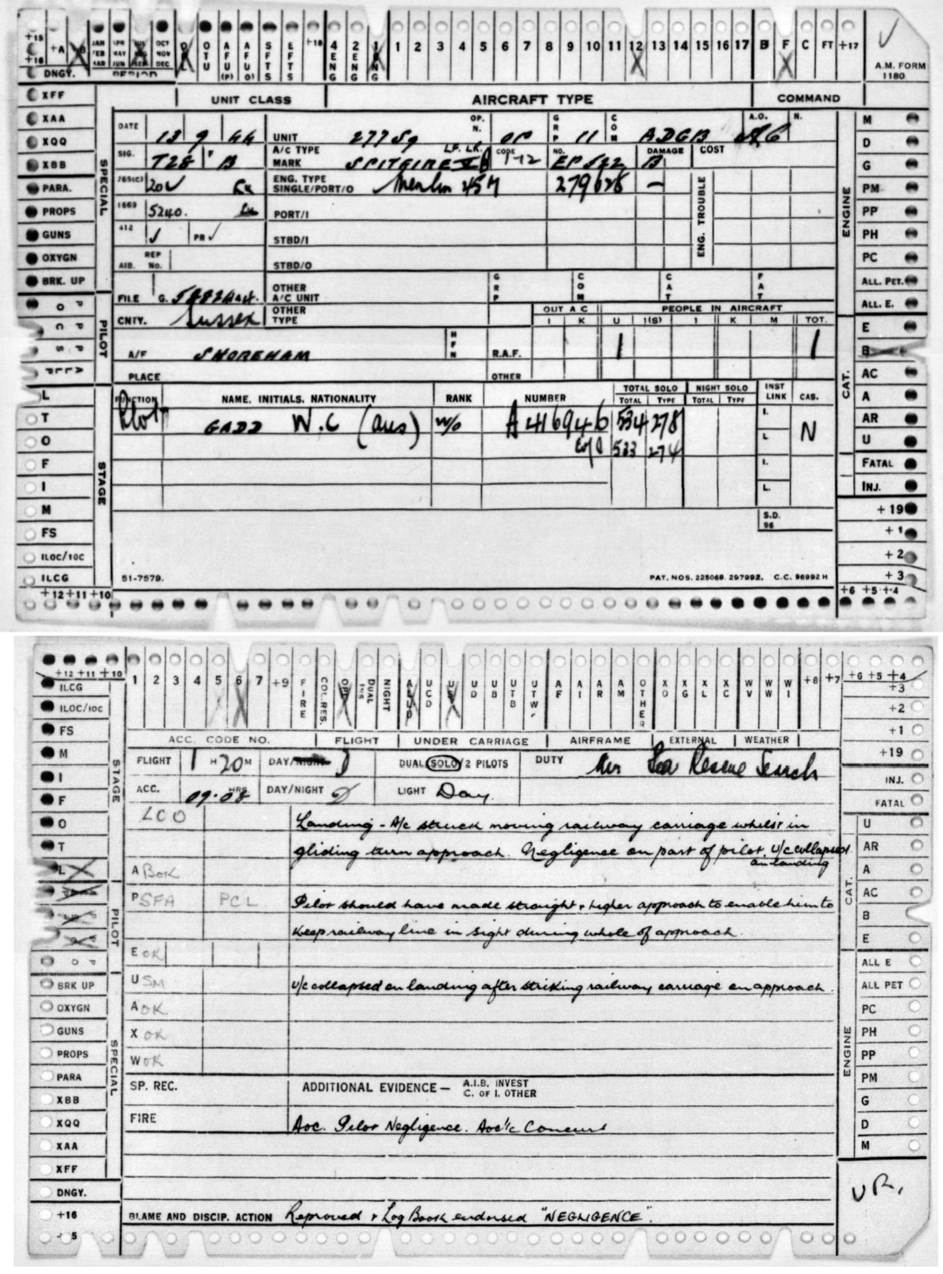 +15 +16 +A JAN FEB MAR APL MAY JUN OCT NOV DEC OTU AFU(P) AFU(O) SFTS EFTS +18 4 ENG 2 ENG 1 ENG 1 2 3 4 5 6 7 8 9 10 11 12 13 14 15 16 17 B F C FT +17
DNGY. PERIOD A.M. FORM 1180
UNIT CLASS AIRCRAFT TYPE COMMAND
DATE 13 9 44 UNIT 277 Sq OP. N. OP GRP 11 COM ADGB A.O. AC N.
SIG. T28 F B A/C TYPE MARK SPITFIRE LF. LK. CODE 1-12 NO. DAMAGE B COST
765(C) 20 ENG. TYPE SINGLE/PORT/O Merlin 45M 279628 — ENG. TROUBLE
1669 5240. PORT/I
412 ✓ PR ✓ STBD/I
AIB. REP NO. STBD/O
FILE G. OTHER A/C UNIT GRP COM CAT FAT
CNTY. Sussex OTHER TYPE OUT A C PEOPLE IN AIRCRAFT
I K U I(S) I K M TOT.
A/F SHOREHAM R.A.F. 1 1
PLACE OTHER
FUNCTION NAME. INITIALS. NATIONALITY RANK NUMBER TOTAL SOLO NIGHT SOLO INST LINK CAS.
TOTAL TYPE TOTAL TYPE
Pilot GADD W.C (aus) W/O A416946 534 278 I. N
533 274 L.
I.
L.
S.D. 96
51-7579. PAT. NOS. 225068. 297992. C.C. 96992 H
XFF
XAA
XQQ
XBB
PARA.
PROPS
GUNS
OXYGN
BRK. UP
SPECIAL
PILOT
L
T
O
F
I
M
FS
ILOC/10C
ILCG
STAGE
+12 +11 +10
M
D
G
PM
PP
PH
PC
ALL PET.
ALL E.
ENGINE
E
B
AC
A
AR
U
CAT.
FATAL
INJ.
+19
+1
+2
+3
+6 +5 +4
+12 +11 +10 1 2 3 4 5 6 7 +9 FIRE COL. RES. DUAL INS NIGHT UCD US UD UB UTB UTW AF AI AR AM OTHER XO XG XL XC WV WW WI +8 +7 +6 +5 +4
ACC. CODE NO. FLIGHT UNDER CARRIAGE AIRFRAME EXTERNAL WEATHER
FLIGHT 1 H 20 M DAY/NIGHT D DUAL/SOLO/2 PILOTS DUTY Air Sea Rescue Search
ACC. 09.08 HRS. DAY/NIGHT D LIGHT Day.
LCO Landing - A/c struck moving railway carriage whilst in
gliding turn approach. Negligence on part of pilot, U/c collapsed
A BOK on landing
P SFA PCL Pilot should have made straight & higher approach to enable him to
keep railway line in sight during whole of approach.
E OK
U SM U/c collapsed on landing after striking railway carriage on approach.
A OK
X OK
W OK
SP. REC. ADDITIONAL EVIDENCE — A.I.B. INVEST C. OF I. OTHER
FIRE Aoc. Pilot Negligence. Aoc i/c Concurs
BLAME AND DISCIP. ACTION Reproved & Log Book endorsed "NEGLIGENCE".
ILCG
ILOC/10C
FS
M
I
F
O
T
L
STAGE
PILOT
BRK UP
OXYGN
GUNS
PROPS
PARA
XBB
XQQ
XAA
XFF
SPECIAL
DNGY.
+16
+3
+2
+1
+19
INJ.
FATAL
U
AR
A
AC
B
E
CAT.
ALL E
ALL PET
PC
PH
PP
PM
G
D
M
ENGINE